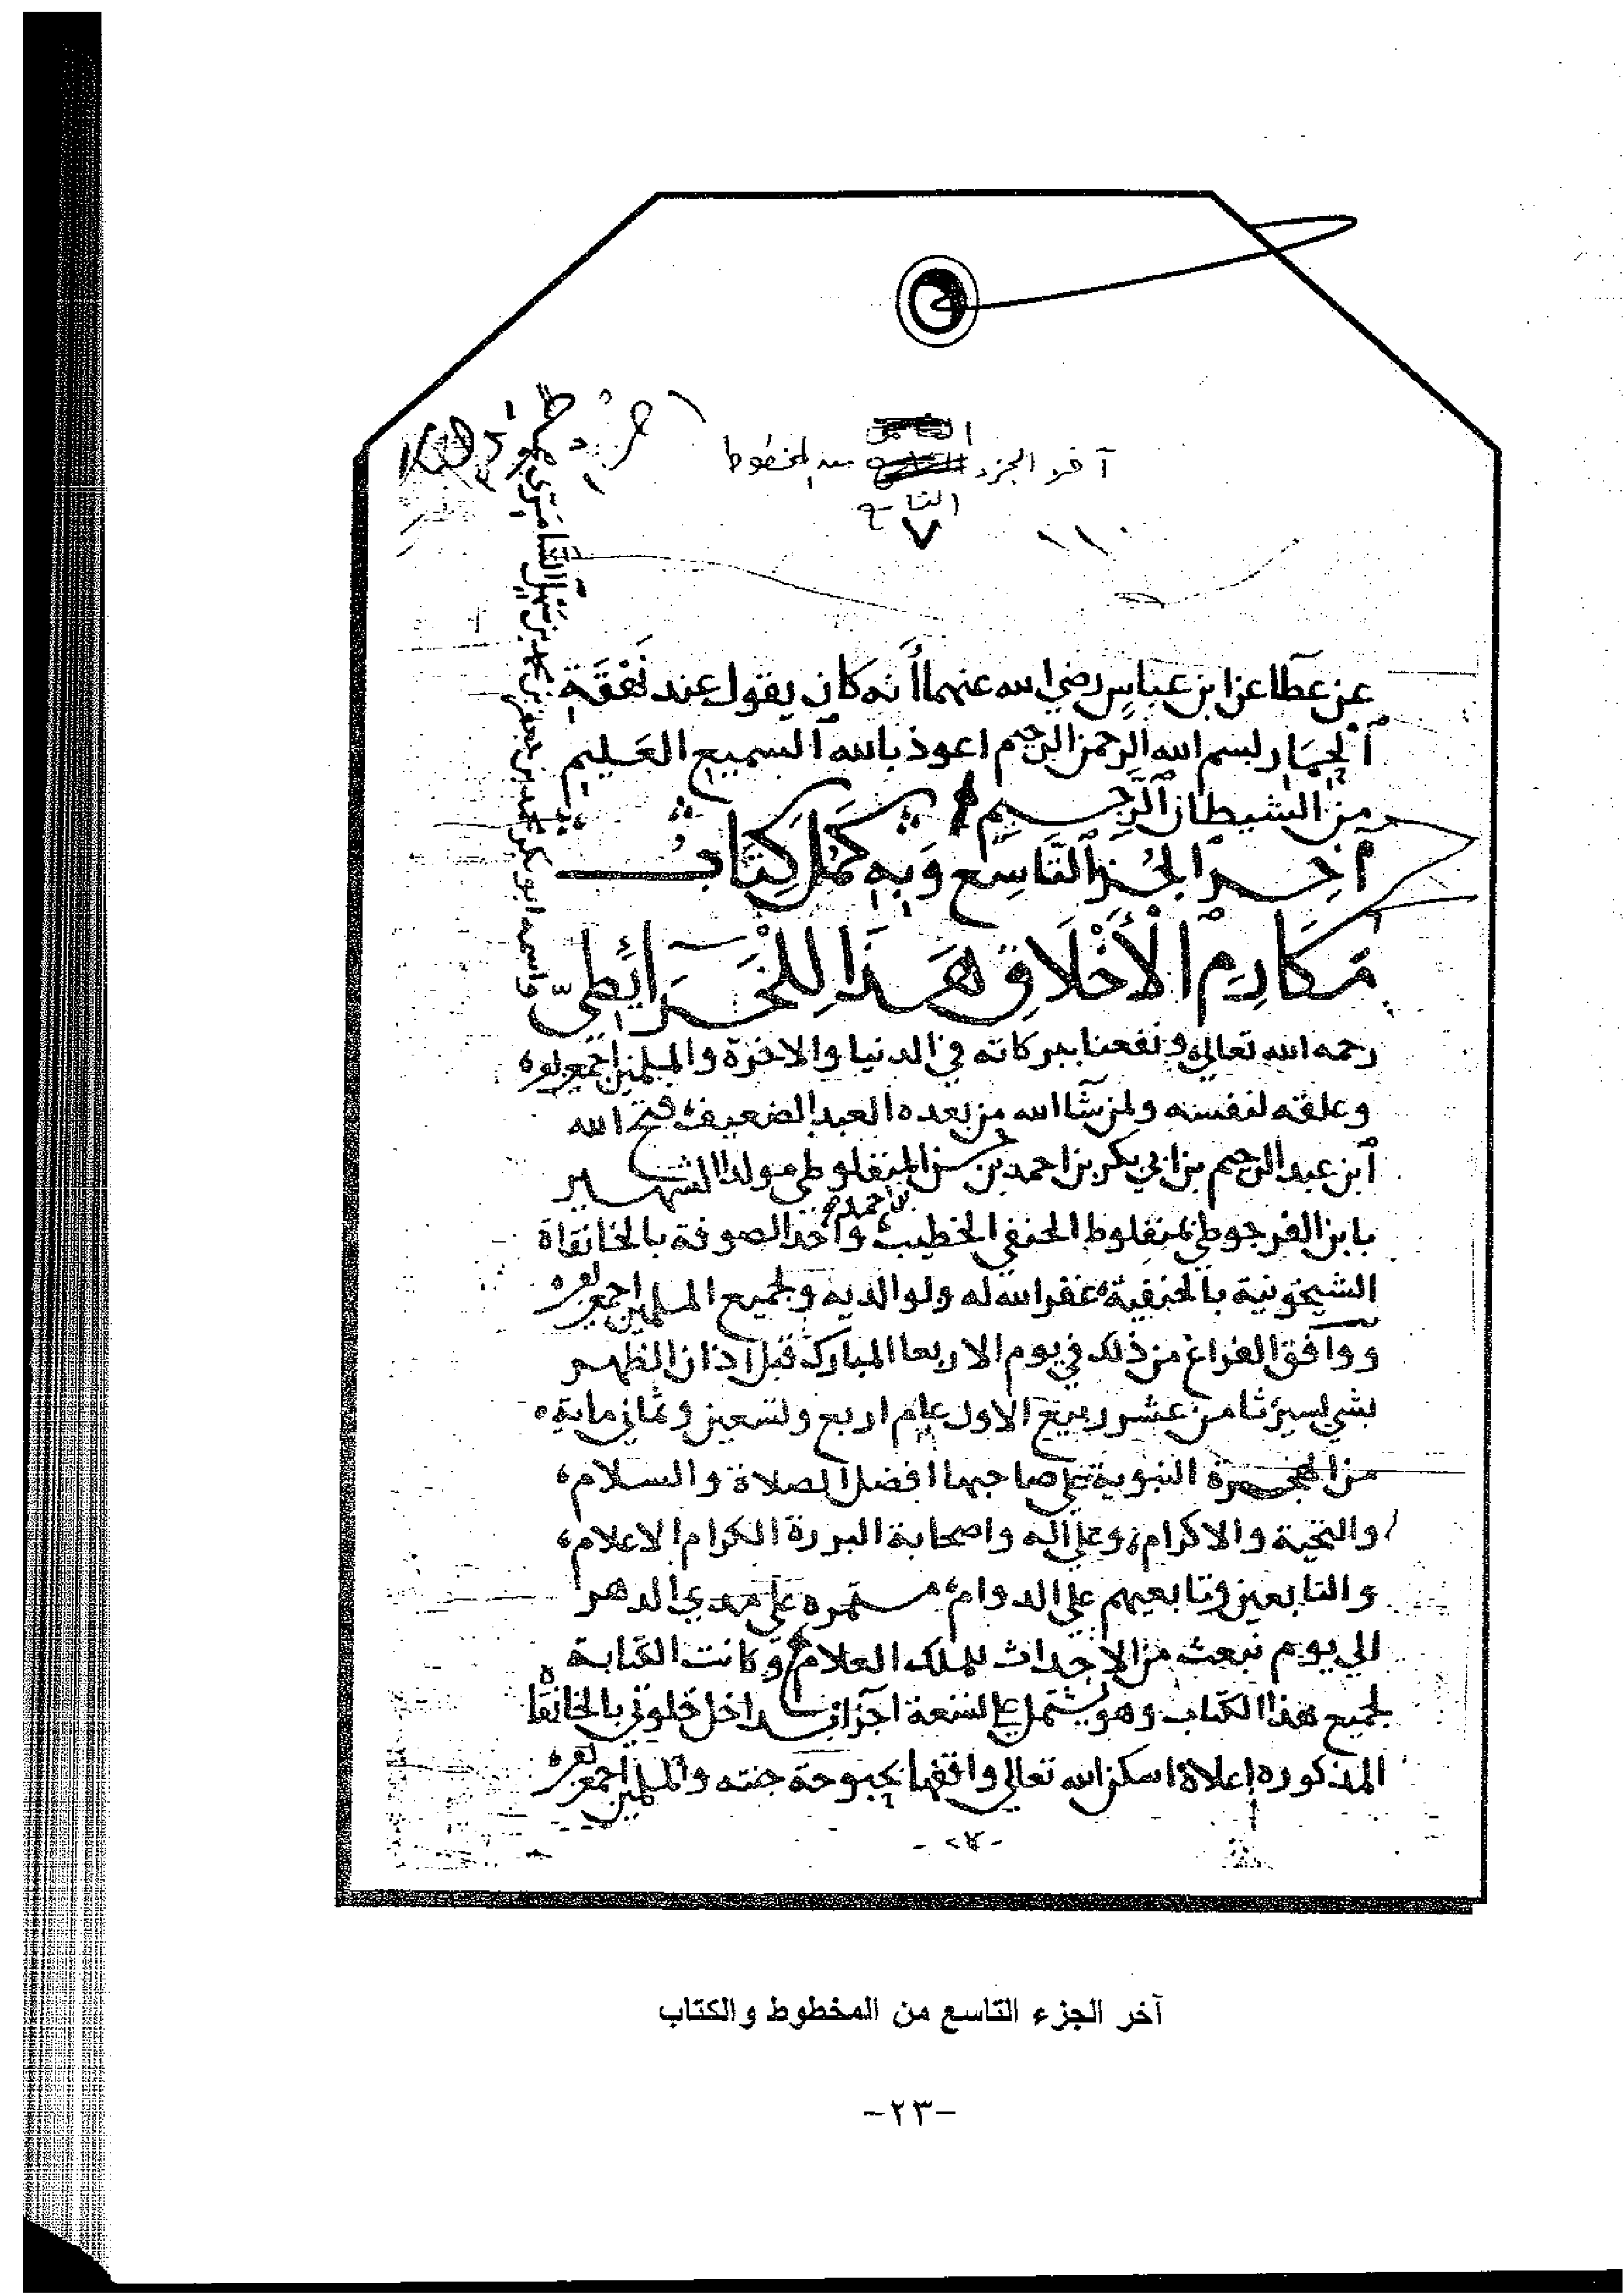 آخر الجزء من المخطوط
التاسع
٧
عن عطا عن ابن عباس رضي الله عنهما أنه كان يقول عند نَهْقَةِ
ٱلحِمَار بسم الله الرحمن الرحيم اعوذ بالله السميع العَليم
من الشيطان الرَّجيم
آخر الجُزءِ التَّاسِع وَبِهِ كَمُلَ كِتَابُ
مَكَارِم الْأَخْلَاقِ هَذَا لِلْخَرَائِطِيّ
رحمه الله تعالى ونفعنا ببركاته في الدنيا والاخرة والمسلمين اجمعين
وعلقه لنفسه ولمن شا الله من بعده العبد الضعيف فتح الله
ابن عبد الرحيم بن ابي بكر بن احمد بن حسن المنفلوطي مولدا الشهير
بابن الفرجوطي بمنفلوط الحنفي الخطيب واحد الصوفة بالخانقاة
الشيخونية بالحنفية غفر الله له ولوالديه ولجميع المسلمين اجمعين
ووافق الفراغ من ذلك في يوم الاربعا المبارك قبل اذان الظهر
بشي يسير ثامن عشر ربيع الاول عام اربع وتسعين وثماني ماية
من الهجرة النبوية على صاحبها افضل الصلاة والسلام
والتحية والاكرام وعلى اله واصحابة البررة الكرام الاعلام
والتابعين وتابعيهم على الدوام مستمره على مدى الدهر
الى يوم نبعث من الاجداث للملك العلام وكانت الكتابة
لجميع هذا الكتاب وهو يشتمل على تسعة اجزا داخل خلوتي بالخانقاه
المذكوره اعلاه اسكن الله تعالى واقفها بحبوحة جنته والمسلمين اجمعين
واسمه ابو بكر محمد بن جعفر بن محمد بن سَهل السَّامَرّي
آخر الجزء التاسع من المخطوط والكتاب
-٢٣-